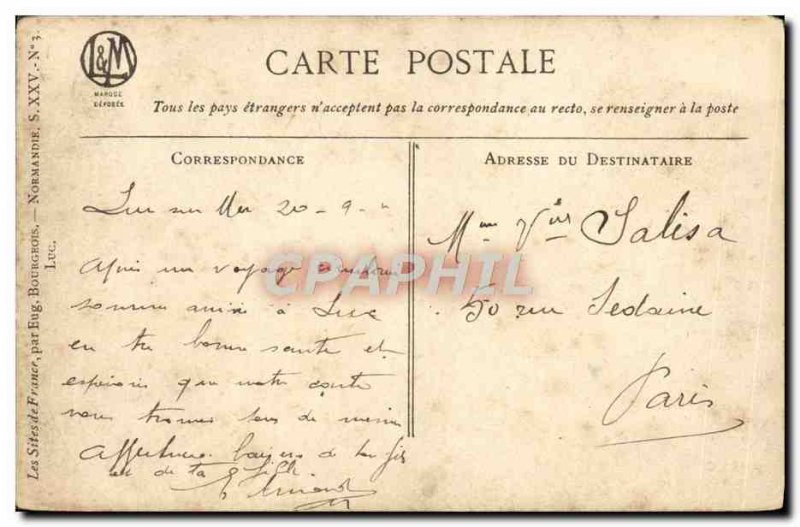 L&M
MARQUE
DÉPOSÉE
CARTE POSTALE
Tous les pays étrangers n'acceptent pas la correspondance au recto, se renseigner à la poste
CORRESPONDANCE
Luc sur Mer 20-9-
Après un voyage
sommes arrivé à Luc
en très bonne santé et
espérons que notre carte
vous trouve de même
Affectueux baisers de ton fils
et de ta fille
ADRESSE DU DESTINATAIRE
Mme Vve Salisa
50 rue Sedaine
Paris
Les Sites de France, par Eug. BOURGEOIS. — NORMANDIE. S. XXV. - No 3.
LUC.
CPAPHIL